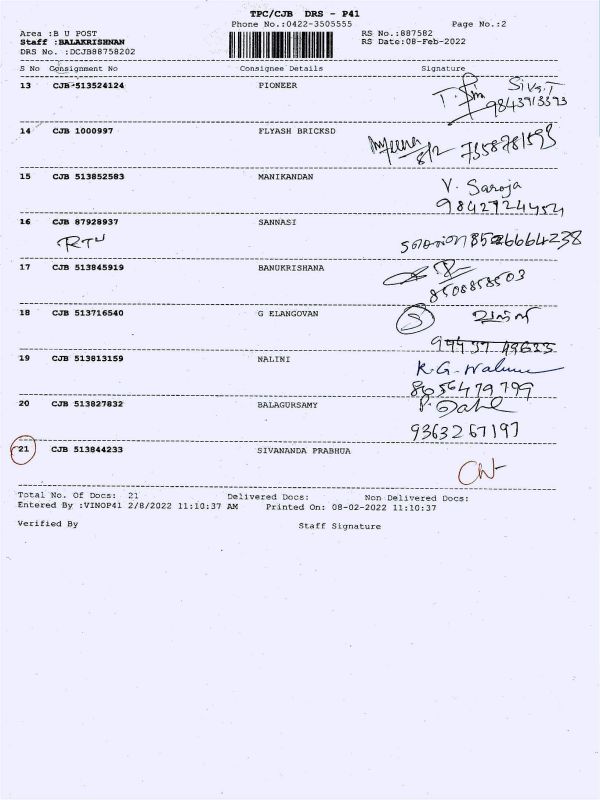 TPC/CJB DRS - P41
Phone No.:0422-3505555 Page No.:2
Area :B U POST RS No.:887582
Staff :BALAKRISHNAN RS Date:08-Feb-2022
DRS No. :DCJB88758202
S No Consignment No Consignee Details Signature
13 CJB 513524124 PIONEER
Siva.T
9843913393
14 CJB 1000997 FLYASH BRICKSD
8/2 7358781593
15 CJB 513852583 MANIKANDAN
V. Saroja
9842724454
16 CJB 87928937 SANNASI
RTU
17 CJB 513845919 BANUKRISHANA
8508858503
18 CJB 513716540 G ELANGOVAN
19 CJB 513813159 NALINI
8656479799
20 CJB 513827832 BALAGURSAMY
9363267197
21 CJB 513844233 SIVANANDA PRABHUA
Total No. Of Docs: 21 Delivered Docs: Non Delivered Docs:
Entered By :VINOP41 2/8/2022 11:10:37 AM Printed On: 08-02-2022 11:10:37
Verified By Staff Signature